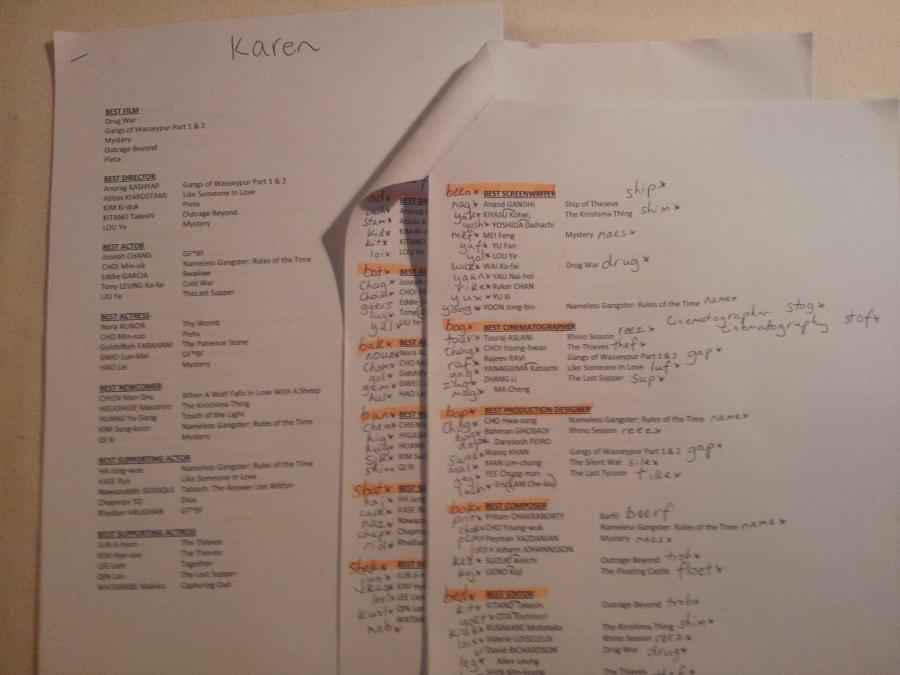 Karen
BEST FILM
Drug War
Gangs of Wasseypur Part 1 & 2
Mystery
Outrage Beyond
Pieta
BEST DIRECTOR
Anurag KASHYAP Gangs of Wasseypur Part 1 & 2
Abbas KIAROSTAMI Like Someone In Love
KIM Ki-duk Pieta
KITANO Takeshi Outrage Beyond
LOU Ye Mystery
BEST ACTOR
Joseph CHANG GF*BF
CHOI Min-sik Nameless Gangster: Rules of the Time
Eddie GARCIA Bwakaw
Tony LEUNG Ka-fai Cold War
LIU Ye TheLast Supper
BEST ACTRESS
Nora AUNOR Thy Womb
CHO Min-soo Pieta
Golshifteh FARAHANI The Patience Stone
GWEI Lun-Mei GF*BF
HAO Lei Mystery
BEST NEWCOMER
CHIEN Man-She When A Wolf Falls In Love With A Sheep
HIGASHIDE Masahiro The Kirishima Thing
HUANG Yu-Siang Touch of the Light
KIM Sung-kyun Nameless Gangster: Rules of the Time
QI Xi Mystery
BEST SUPPORTING ACTOR
HA Jung-woo Nameless Gangster: Rules of the Time
KASE Ryo Like Someone In Love
Nawazuddin SIDDIQUI Talaash: The Answer Lies Within
Chapman TO Diva
Rhydian VAUGHAN GF*BF
BEST SUPPORTING ACTRESS
JUN Ji-hyun The Thieves
KIM Hye-soo The Thieves
LEE Lieh Together
QIN Lan The Last Supper
WATANABE Makiko Capturing Dad
BEST
Anurag
stam* Abbas
kid* KIM Ki-d
kit* KITANO
loi* LOU Ye
bat* BEST AC
chag* Joseph
choim* CHOI
Eddie G
lug* Tony
LIU Ye
bak* BEST AC
Nora A
chom* CHO M
gol* Golshift
gem* GWEI L
hal* HAO L
ban* BEST
chem* CHIEN
hig* HIGASH
HUANG
KIM Su
QI Xi
sbat* BEST SU
HA Jung
KASE
naz* Nawaz
chap* Chapm
rid* Rhydian
BEST S
jun* JUN Ji-
KIM Hy
LEE Lieh
QIN Lan
WATAN
nab*
been* BEST SCREENWRITER
nag* Anand GANDHI Ship of Theseus ship*
yak* KIYASU Kohei, The Kirishima Thing shim*
yosh* YOSHIDA Daihachi
mef* MEI Feng Mystery maes*
yuf* YU Fan
yol* LOU Ye
WAI Ka-fai Drug War drug*
YAU Nai-hoi
rike* Ryker CHAN
yux* YU Xi
yoog* YOON Jong-bin Nameless Gangster: Rules of the Time name*
Cinematographer stog*
Cinematography stof*
bog* BEST CINEMATOGRAPHER
tour* Touraj ASLANI Rhino Season reez*
CHOI Young-hwan The Thieves thef*
raf* Rajeev RAVI Gangs of Wasseypur Part 1 & 2 gap*
yag* YANAGIJIMA Katsumi Like Someone In Love luf*
ZHANG Li The Last Supper sup*
MA Cheng
bop* BEST PRODUCTION DESIGNER
CHO Hwa-sung Nameless Gangster: Rules of the Time name*
Bahman GHOBADI Rhino Season reez*
Daryoosh PEIRO
Wasiq KHAN Gangs of Wasseypur Part 1 & 2 gap*
MAN Lim-chung The Silent War silex
YEE Chung-man The Last Tycoon tike*
Eric LAM Che-kiu
bok* BEST COMPOSER
Pritam CHAKRABORTY Barfi! baerf
CHO Young-wuk Nameless Gangster: Rules of the Time name*
Peyman YAZDANIAN Mystery maes*
Johann JOHANNSSON
SUZUKI Keiichi Outrage Beyond
koj* UENO Koji The Floating Castle floet*
BEST EDITOR
kit* KITANO Takeshi Outrage Beyond
OTA Yoshinori
KUSAKABE Mototaka The Kirishima Thing shim*
Valerie LOISELEUX Rhino Season reez*
David RICHARDSON Drug War drug*
leg* Allen Leung
SHIN Min-kyung The Thieves